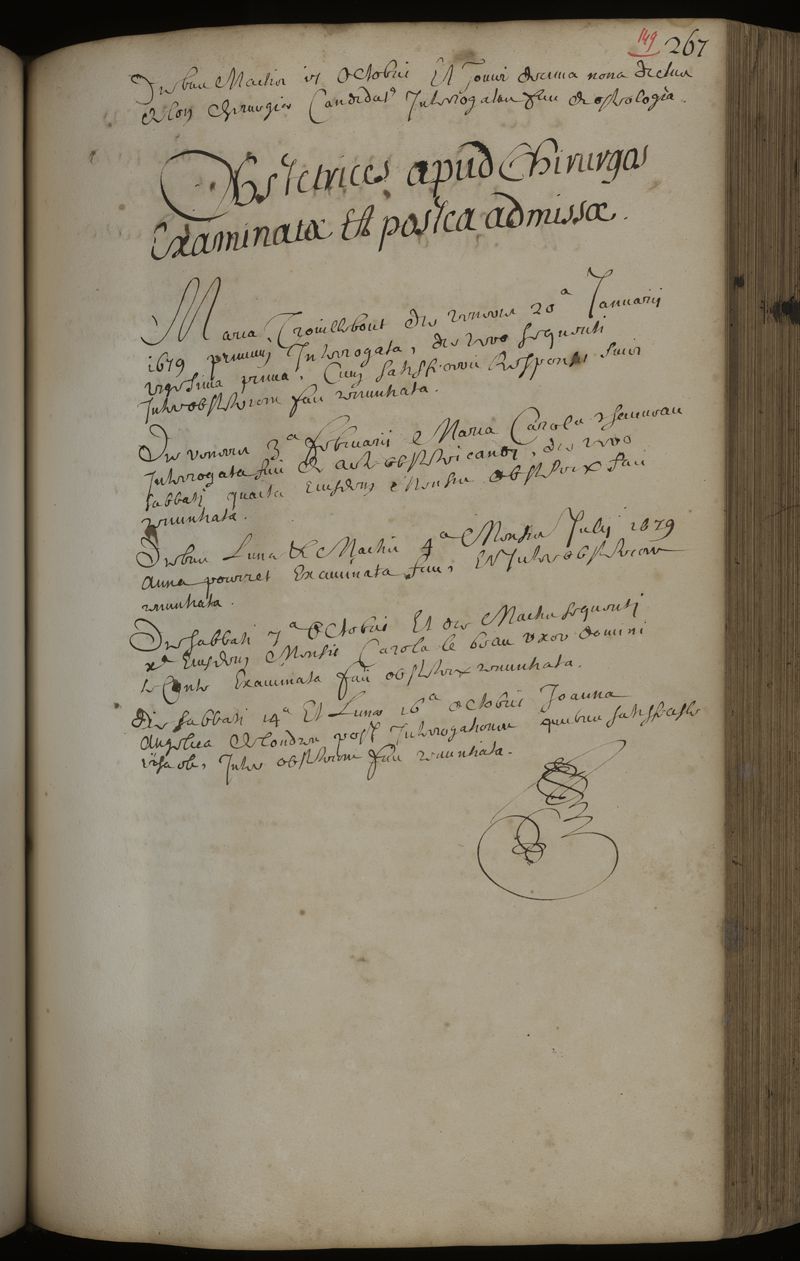 149 267
Diebus Martis 17 Octobris Et Jovis decima nona dictus
Chirurgiæ Candidatus Interrogatus fuit de ostrologia.
Obstetrices apud Chirurgos
Examinatæ Et postea admissæ.
Maria Trouillebout die veneris 20a Januarii
1679 primum Interrogata, die vero sequenti
vigesima prima, Cum satisfecerit Responsis suis
Inter obstetrices fuit renuntiata.
Die veneris 3a februarii Maria Carola
Interrogata fuit de arte obstetricandi, die vero
sabbati quarta Eiusdem Mensis obstetrix fuit
renuntiata.
Diebus Lunæ & Martis 4a Mensis Julii 1679
Anna pourret Examinata fuit, Et Inter obstetrices
renuntiata.
Die sabbati 7a Octobris Et die Martis sequenti
xa Eiusdem Mensis Carola le beau uxor Domini
le Conte Examinata fuit obstetrix renuntiata.
die sabbati 14a Et Lunæ 16a Octobris Joanna
Angelica Blondeau post Interrogationes quibus satisfecisse
visa est, Inter obstetrices fuit renuntiata.